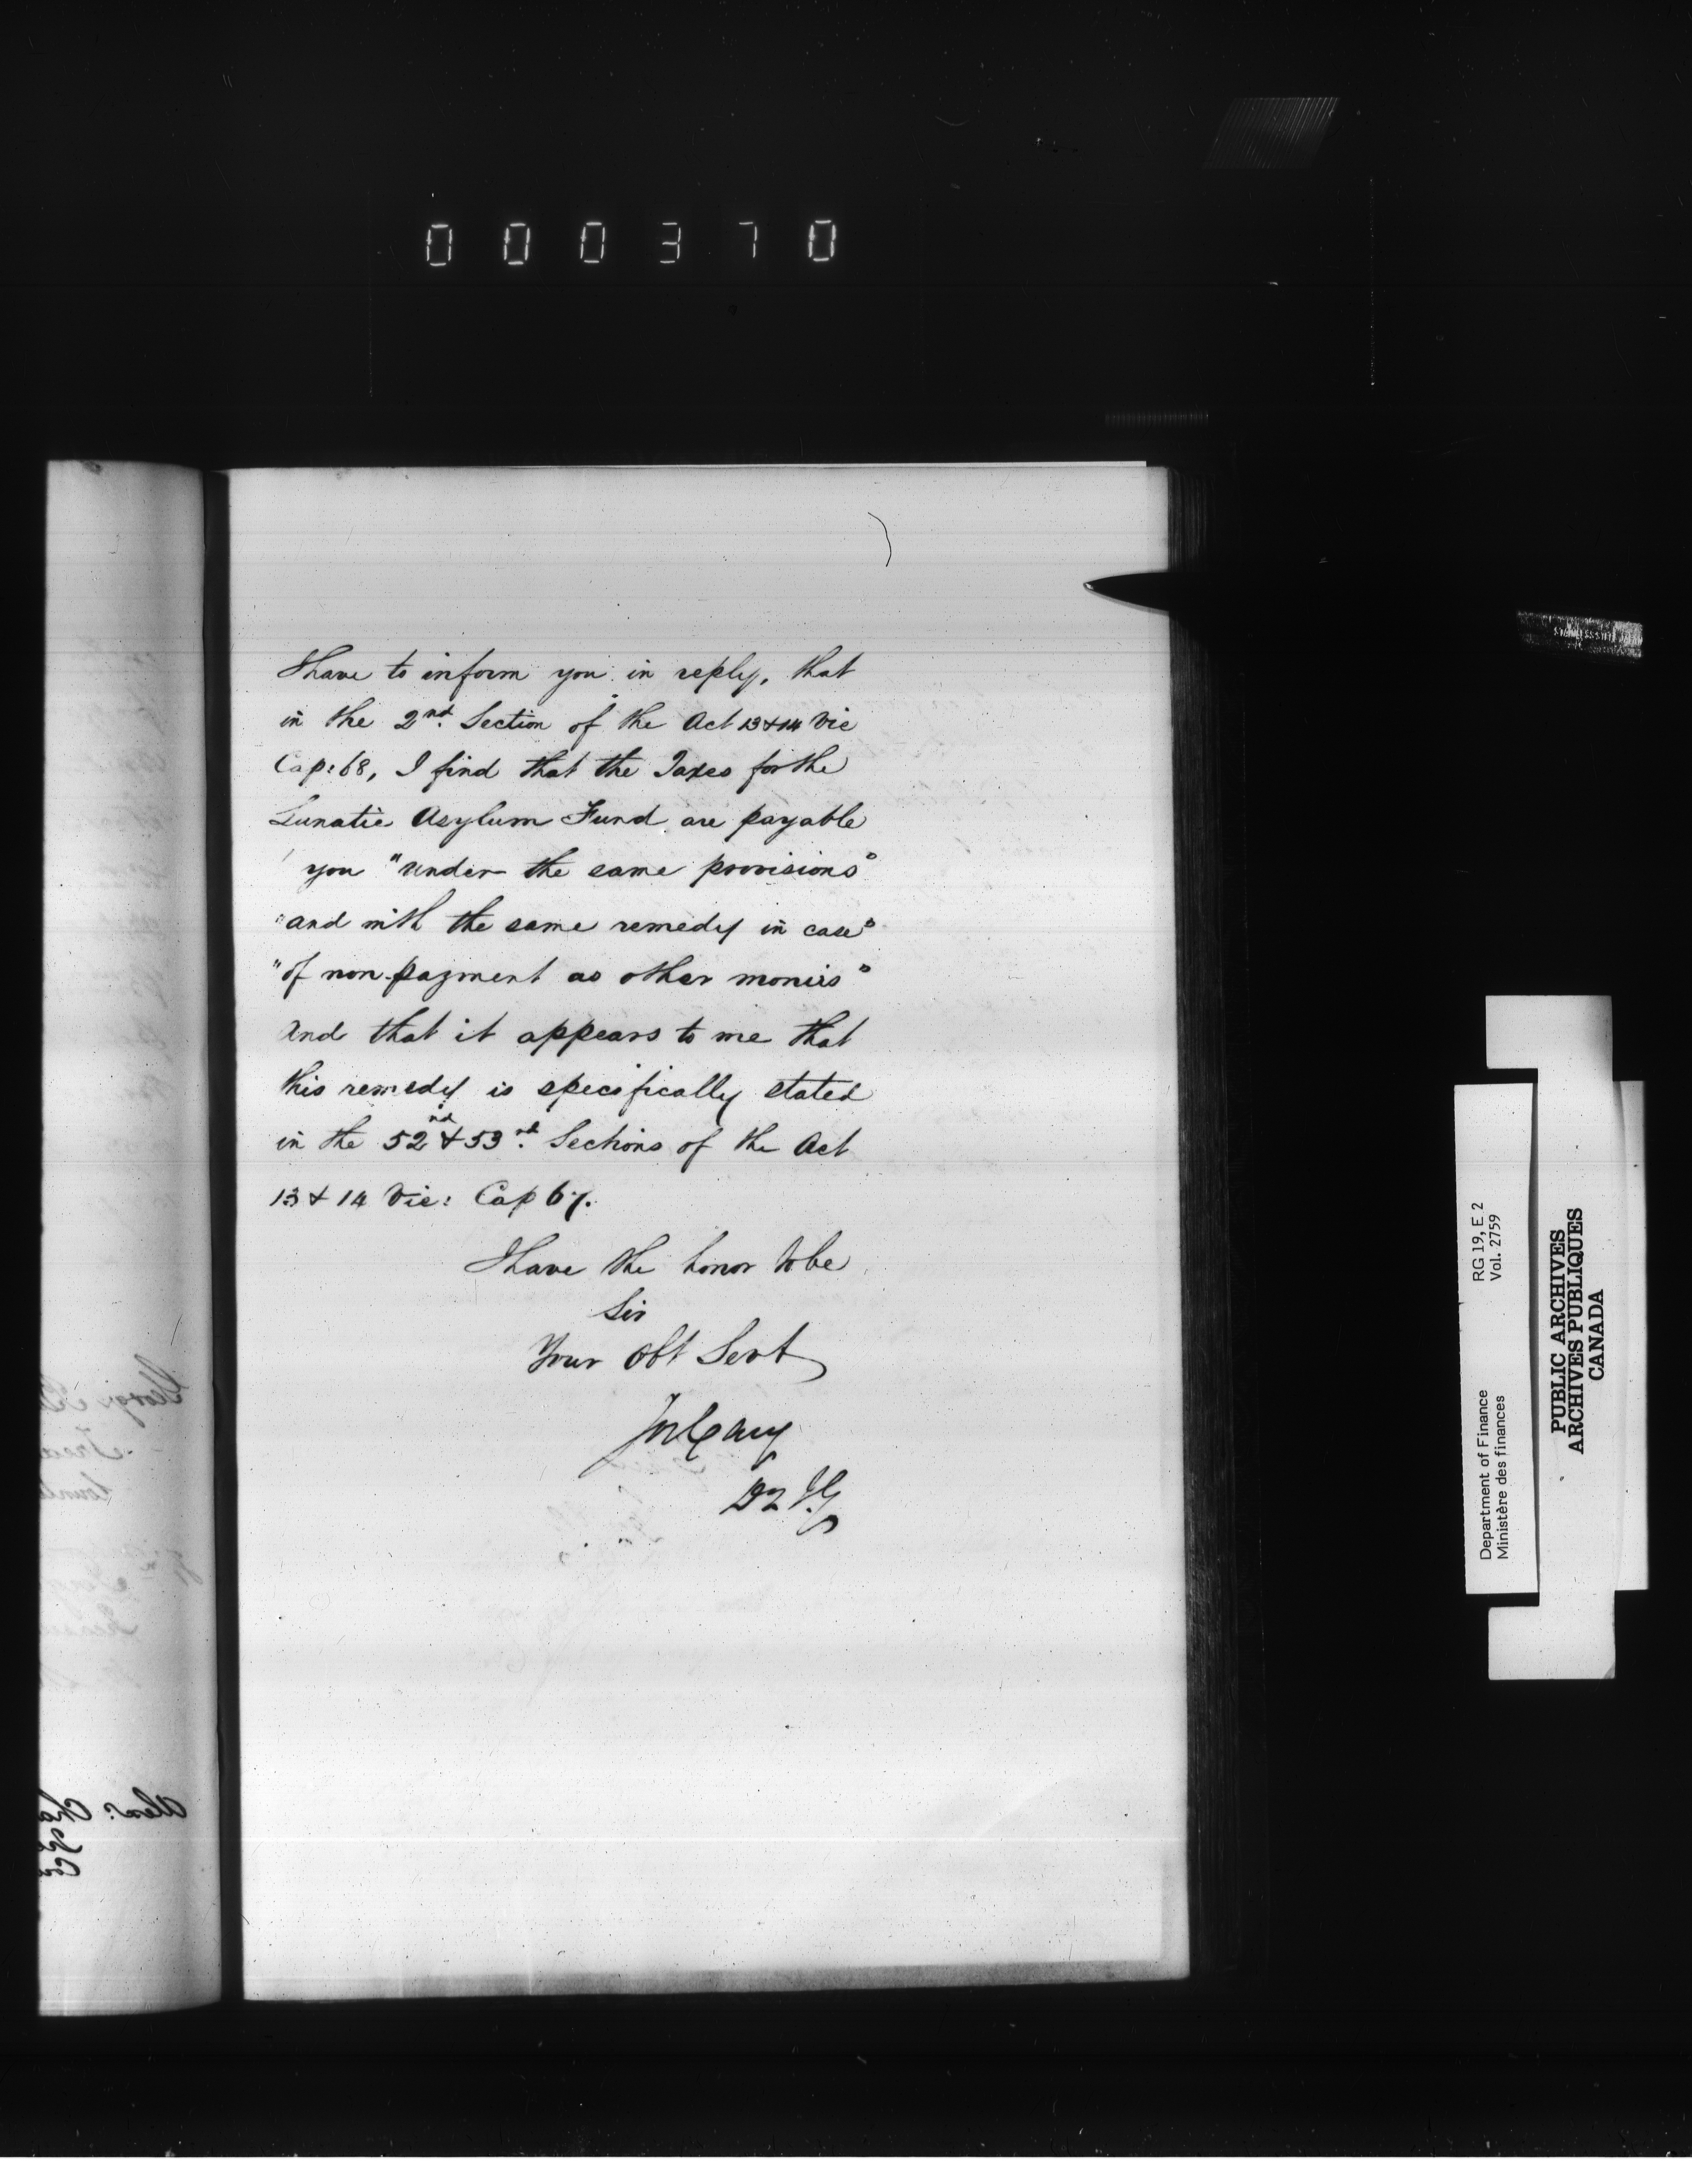 000370
I have to inform you in reply, that
in the 2nd. Section of the Act 13 & 14 Vic
Cap: 68, I find that the Taxes for the
Lunatic Asylum Fund are payable
you "under the same provisions"
"and with the same remedy in case"
"of non-payment as other monies"
And that it appears to me that
this remedy is specifically stated
in the 52nd & 53rd. Sections of the Act
13 & 14 Vic: Cap 67.
I have the honor to be
Sir
Your Obt Servt
Jos Cary
D I G
Department of Finance RG 19, E 2
Ministère des finances Vol. 2759
PUBLIC ARCHIVES
ARCHIVES PUBLIQUES
CANADA